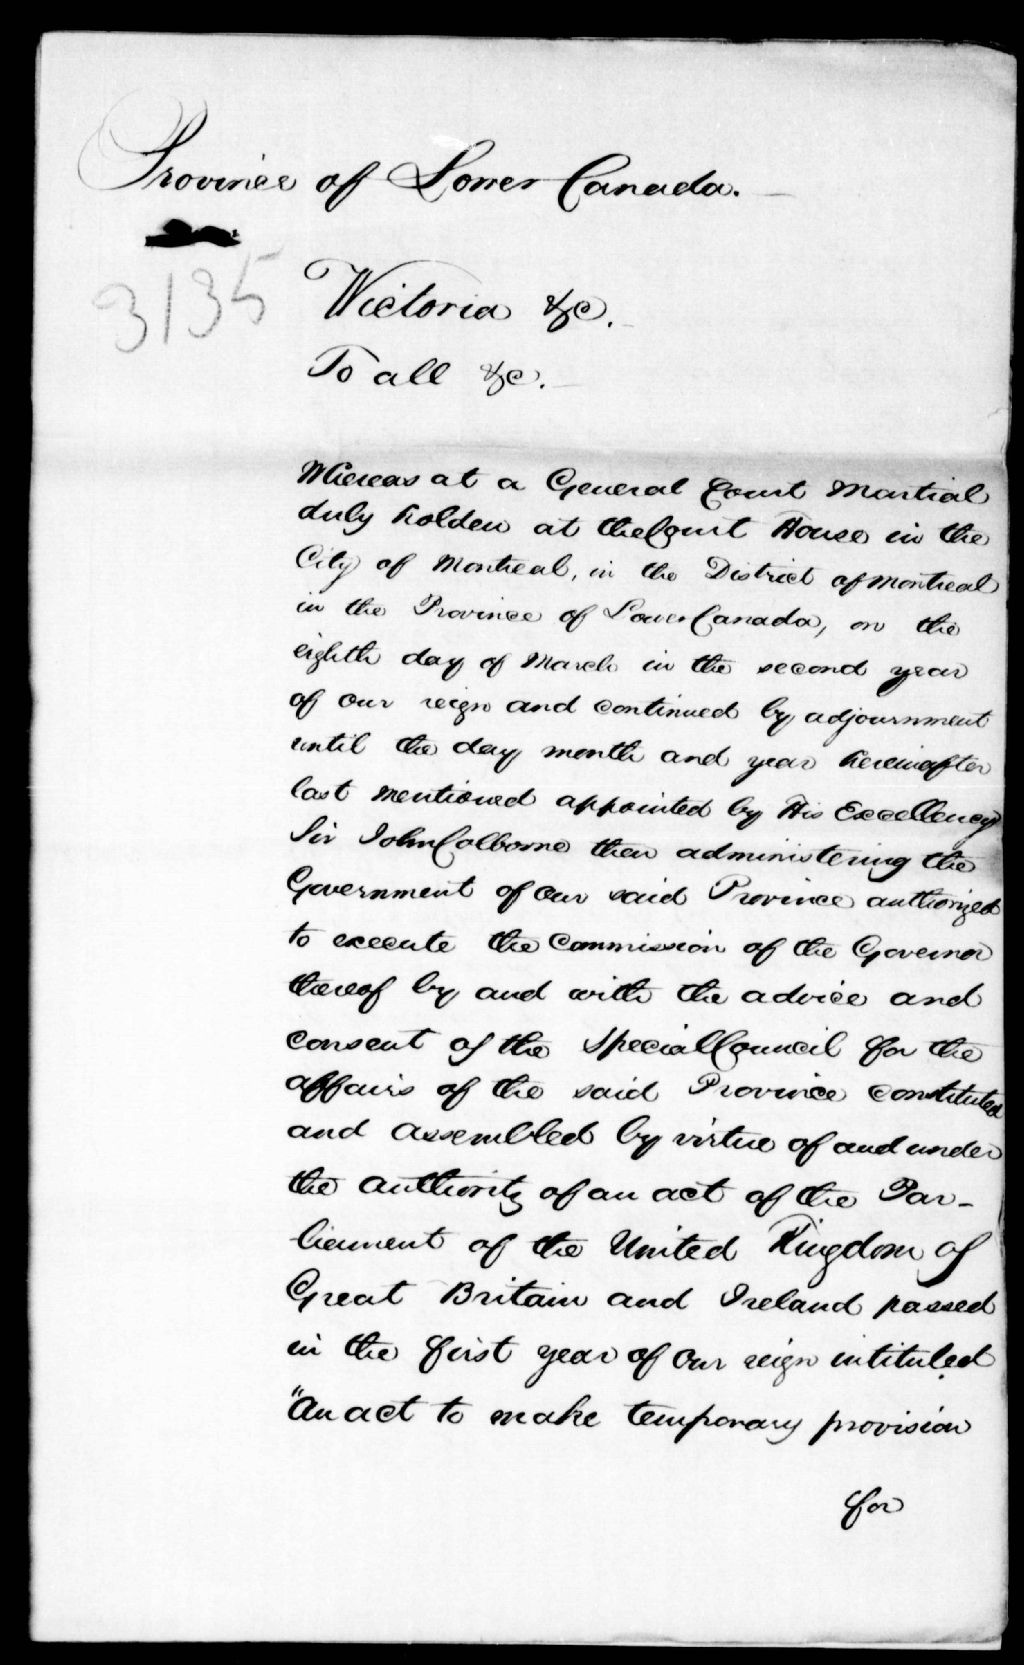 Province of Lower Canada.
3135
Victoria &c.
To all &c.
Whereas at a General Court Martial
duly holden at the Court House in the
City of Montreal, in the District of Montreal
in the Province of Lower Canada, on the
eighth day of March in the second year
of our reign and continued by adjournment
until the day month and year hereinafter
last mentioned appointed by His Excellency
Sir John Colborne then administering the
Government of our said Province authorized
to execute the Commission of the Governor
thereof by and with the advice and
consent of the Special Council for the
affairs of the said Province constituted
and assembled by virtue of and under
the authority of an act of the Par-
liament of the United Kingdom of
Great Britain and Ireland passed
in the first year of Our reign intituled
"An act to make temporary provision
for